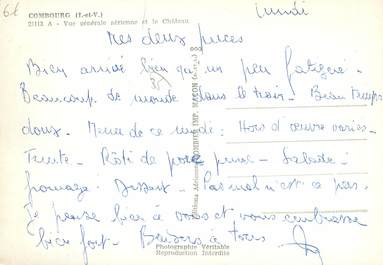 61
COMBOURG (I.-et-V.)
21113 A - Vue générale aérienne et le Château
lundi
Mes deux puces
Bien arrivé bien qu'un peu fatigué.
Beaucoup de monde dans le train - Beau temps
doux. Menu de ce midi : Hors d'œuvre variés -
Truite - Rôti de porc purée - Salade -
fromage - Dessert - Pas mal n'est ce pas.
Je pense bien à vous et vous embrasse
bien fort - Bonjour à tous
COMBIER IMP. MACON
Photographie Véritable
Reproduction Interdite